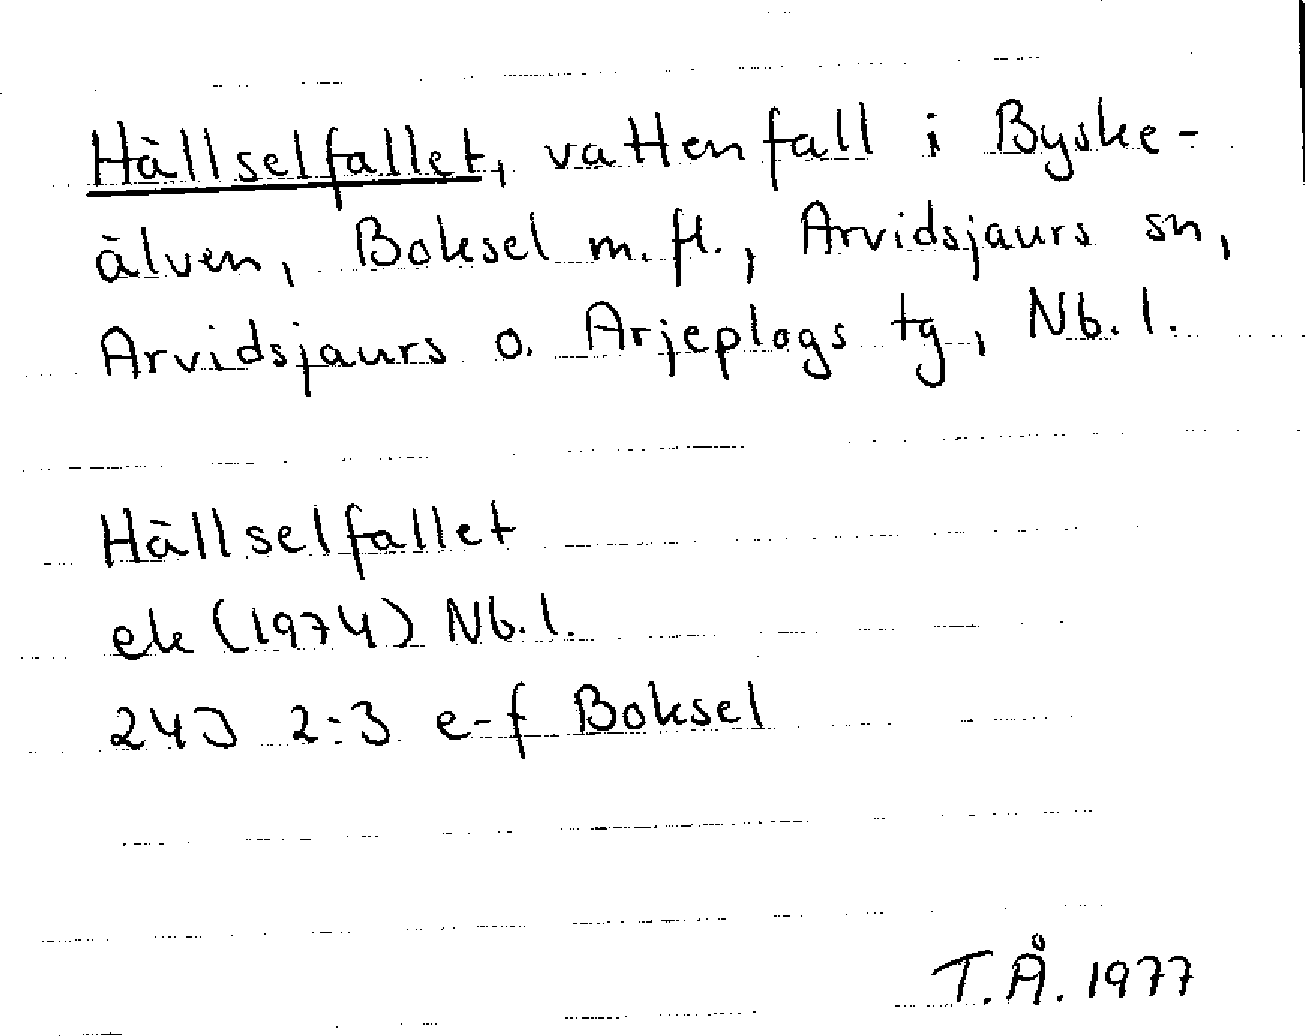 Hällselfallet, vattenfall i Byske-
älven, Boksel m. fl., Arvidsjaurs sn,
Arvidsjaurs o. Arjeplogs tg, Nb. l.
Hällselfallet
ek (1974) Nb. l.
24J 2:3 e-f Boksel
T.Å. 1977